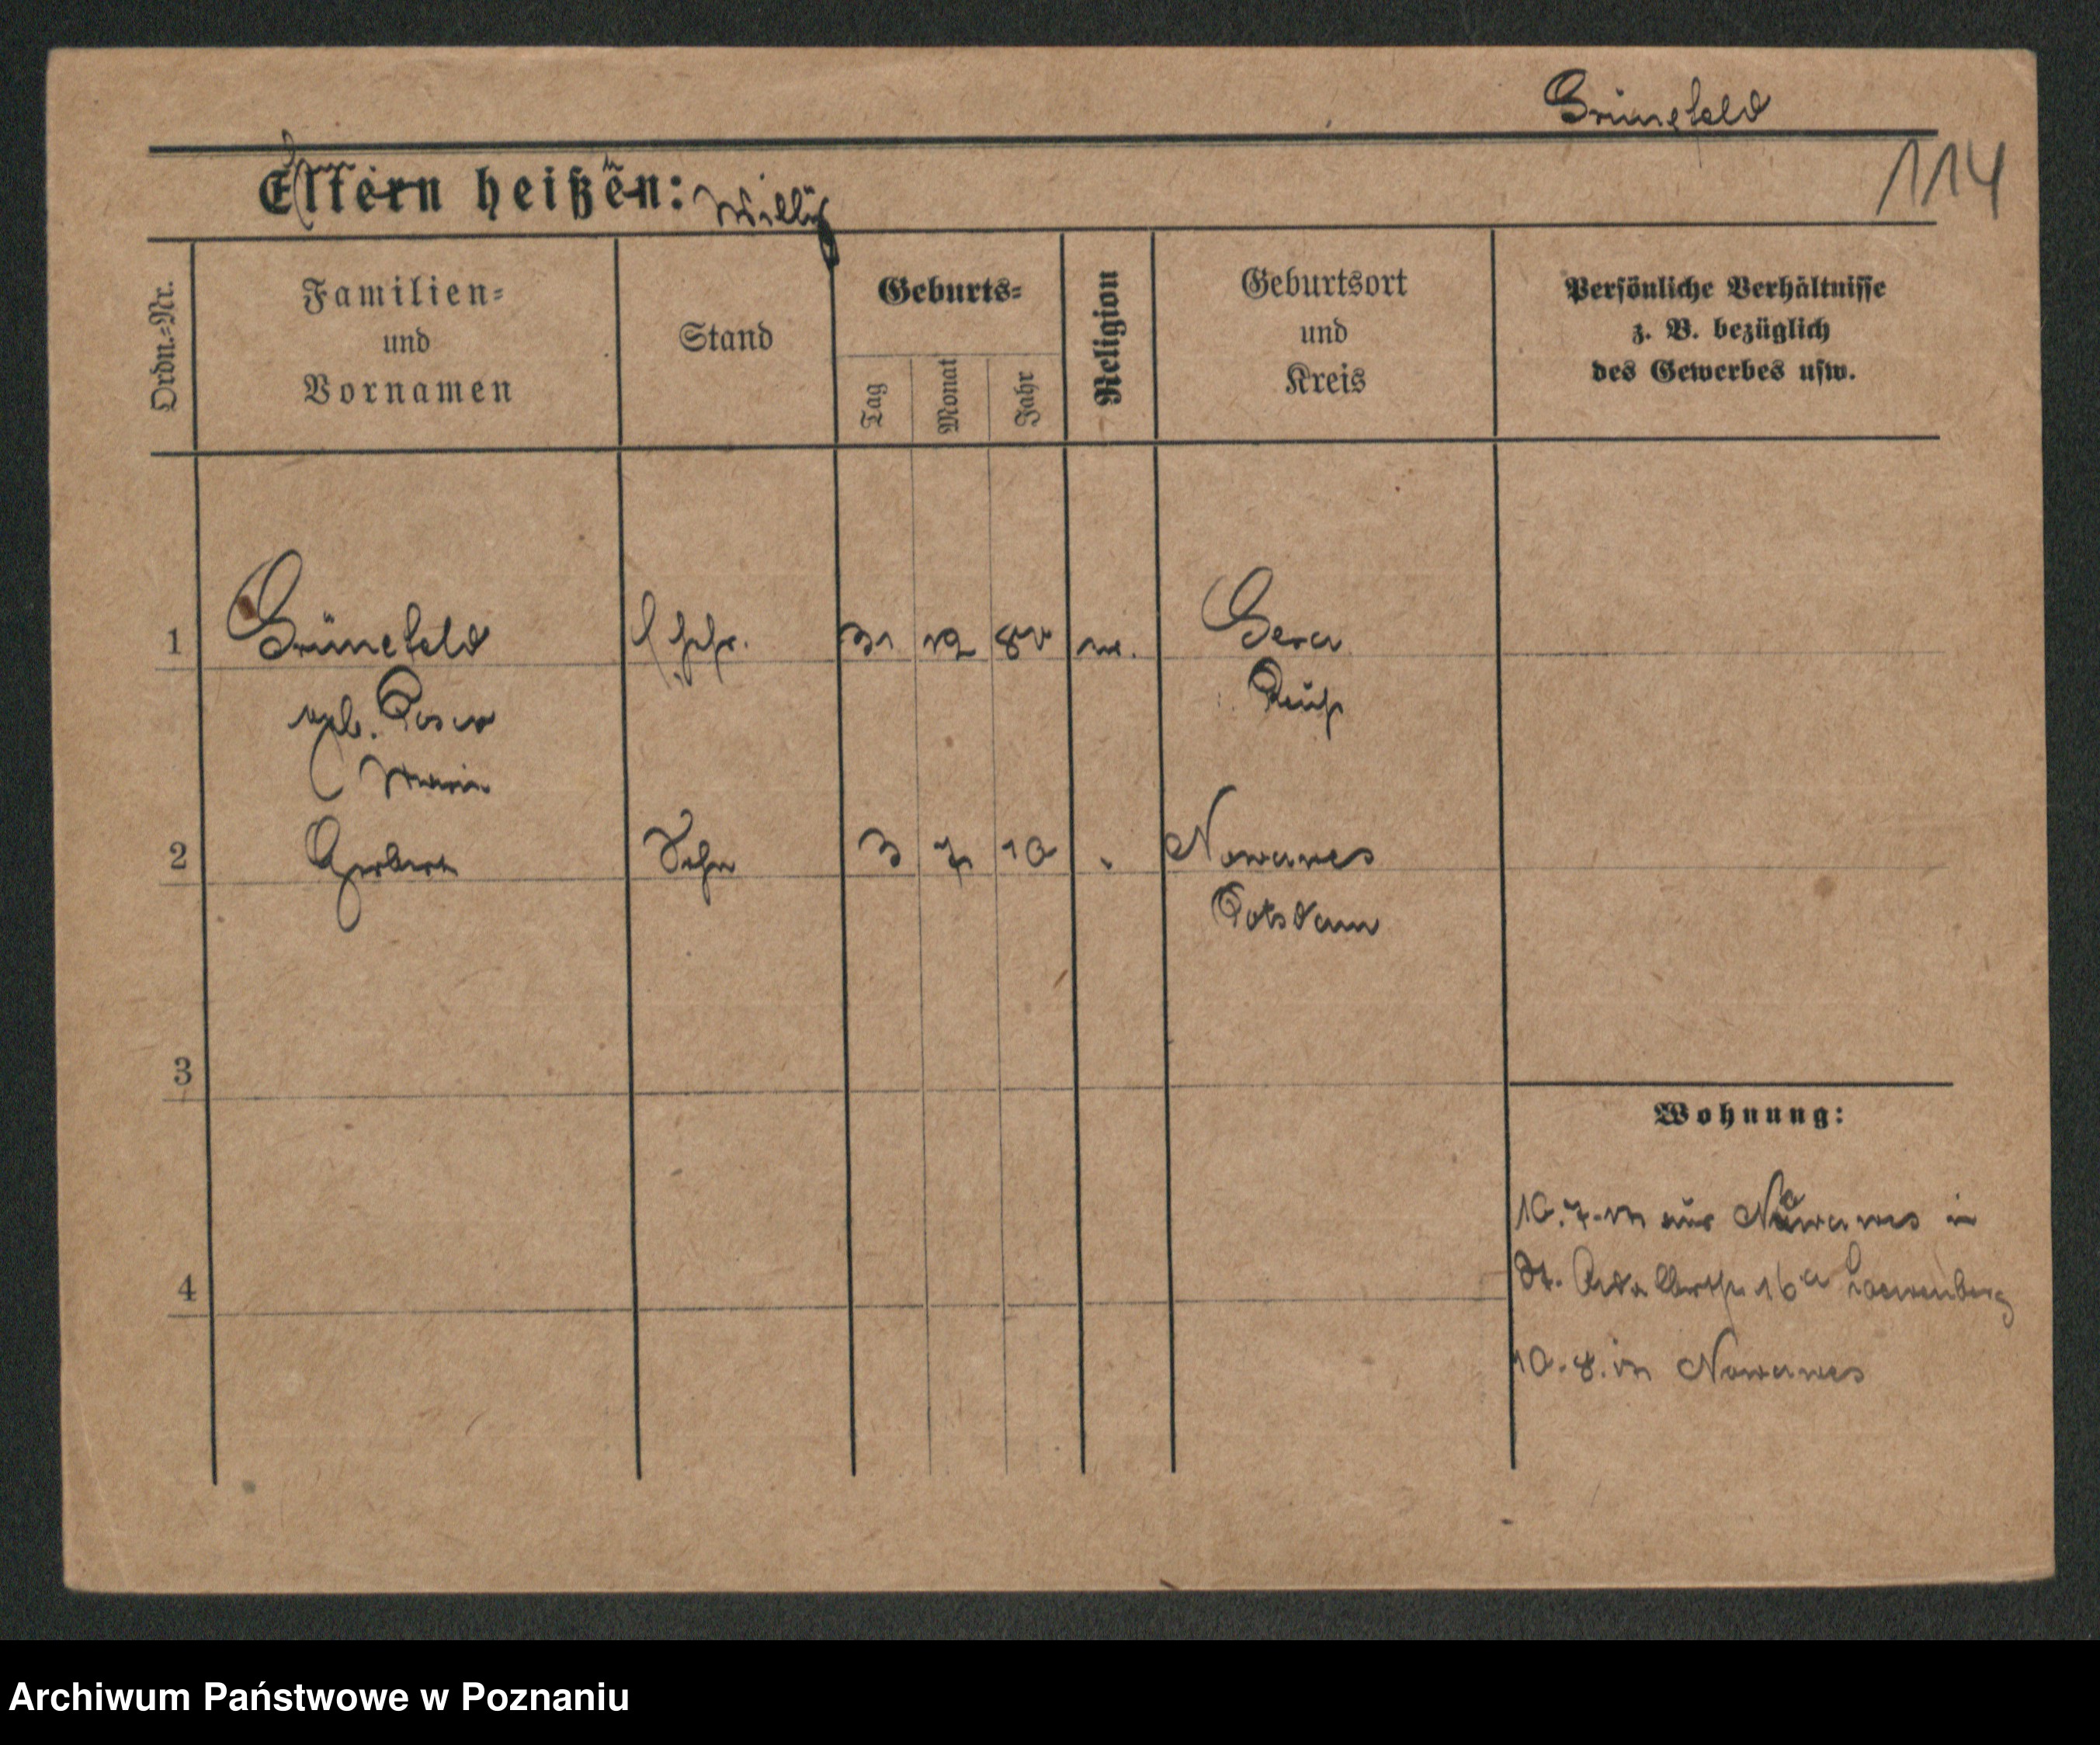 Grünefeld
114
Eltern heißen: Willy
Ordn.-Nr.
Familien-
und
Vornamen
Stand
Geburts-
Tag
Monat
Jahr
Religion
Geburtsort
und
Kreis
Persönliche Verhältnisse
z. B. bezüglich
des Gewerbes usw.
1 Grünefeld Ehefr. 31 12 Gera
geb. Reuß
Marie
2 Sohn 3 7 10 Nowawes
Potsdam
3
Wohnung:
10.7. aus Nowawes in
4 St. Adalbertstr 16a Loewenberg
10.8. in Nowawes
Archiwum Państwowe w Poznaniu